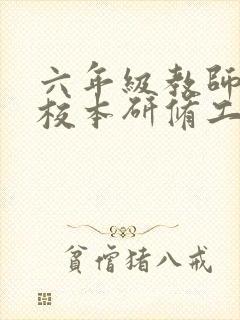 六年级教师
校本研修工
贫僧猪八戒